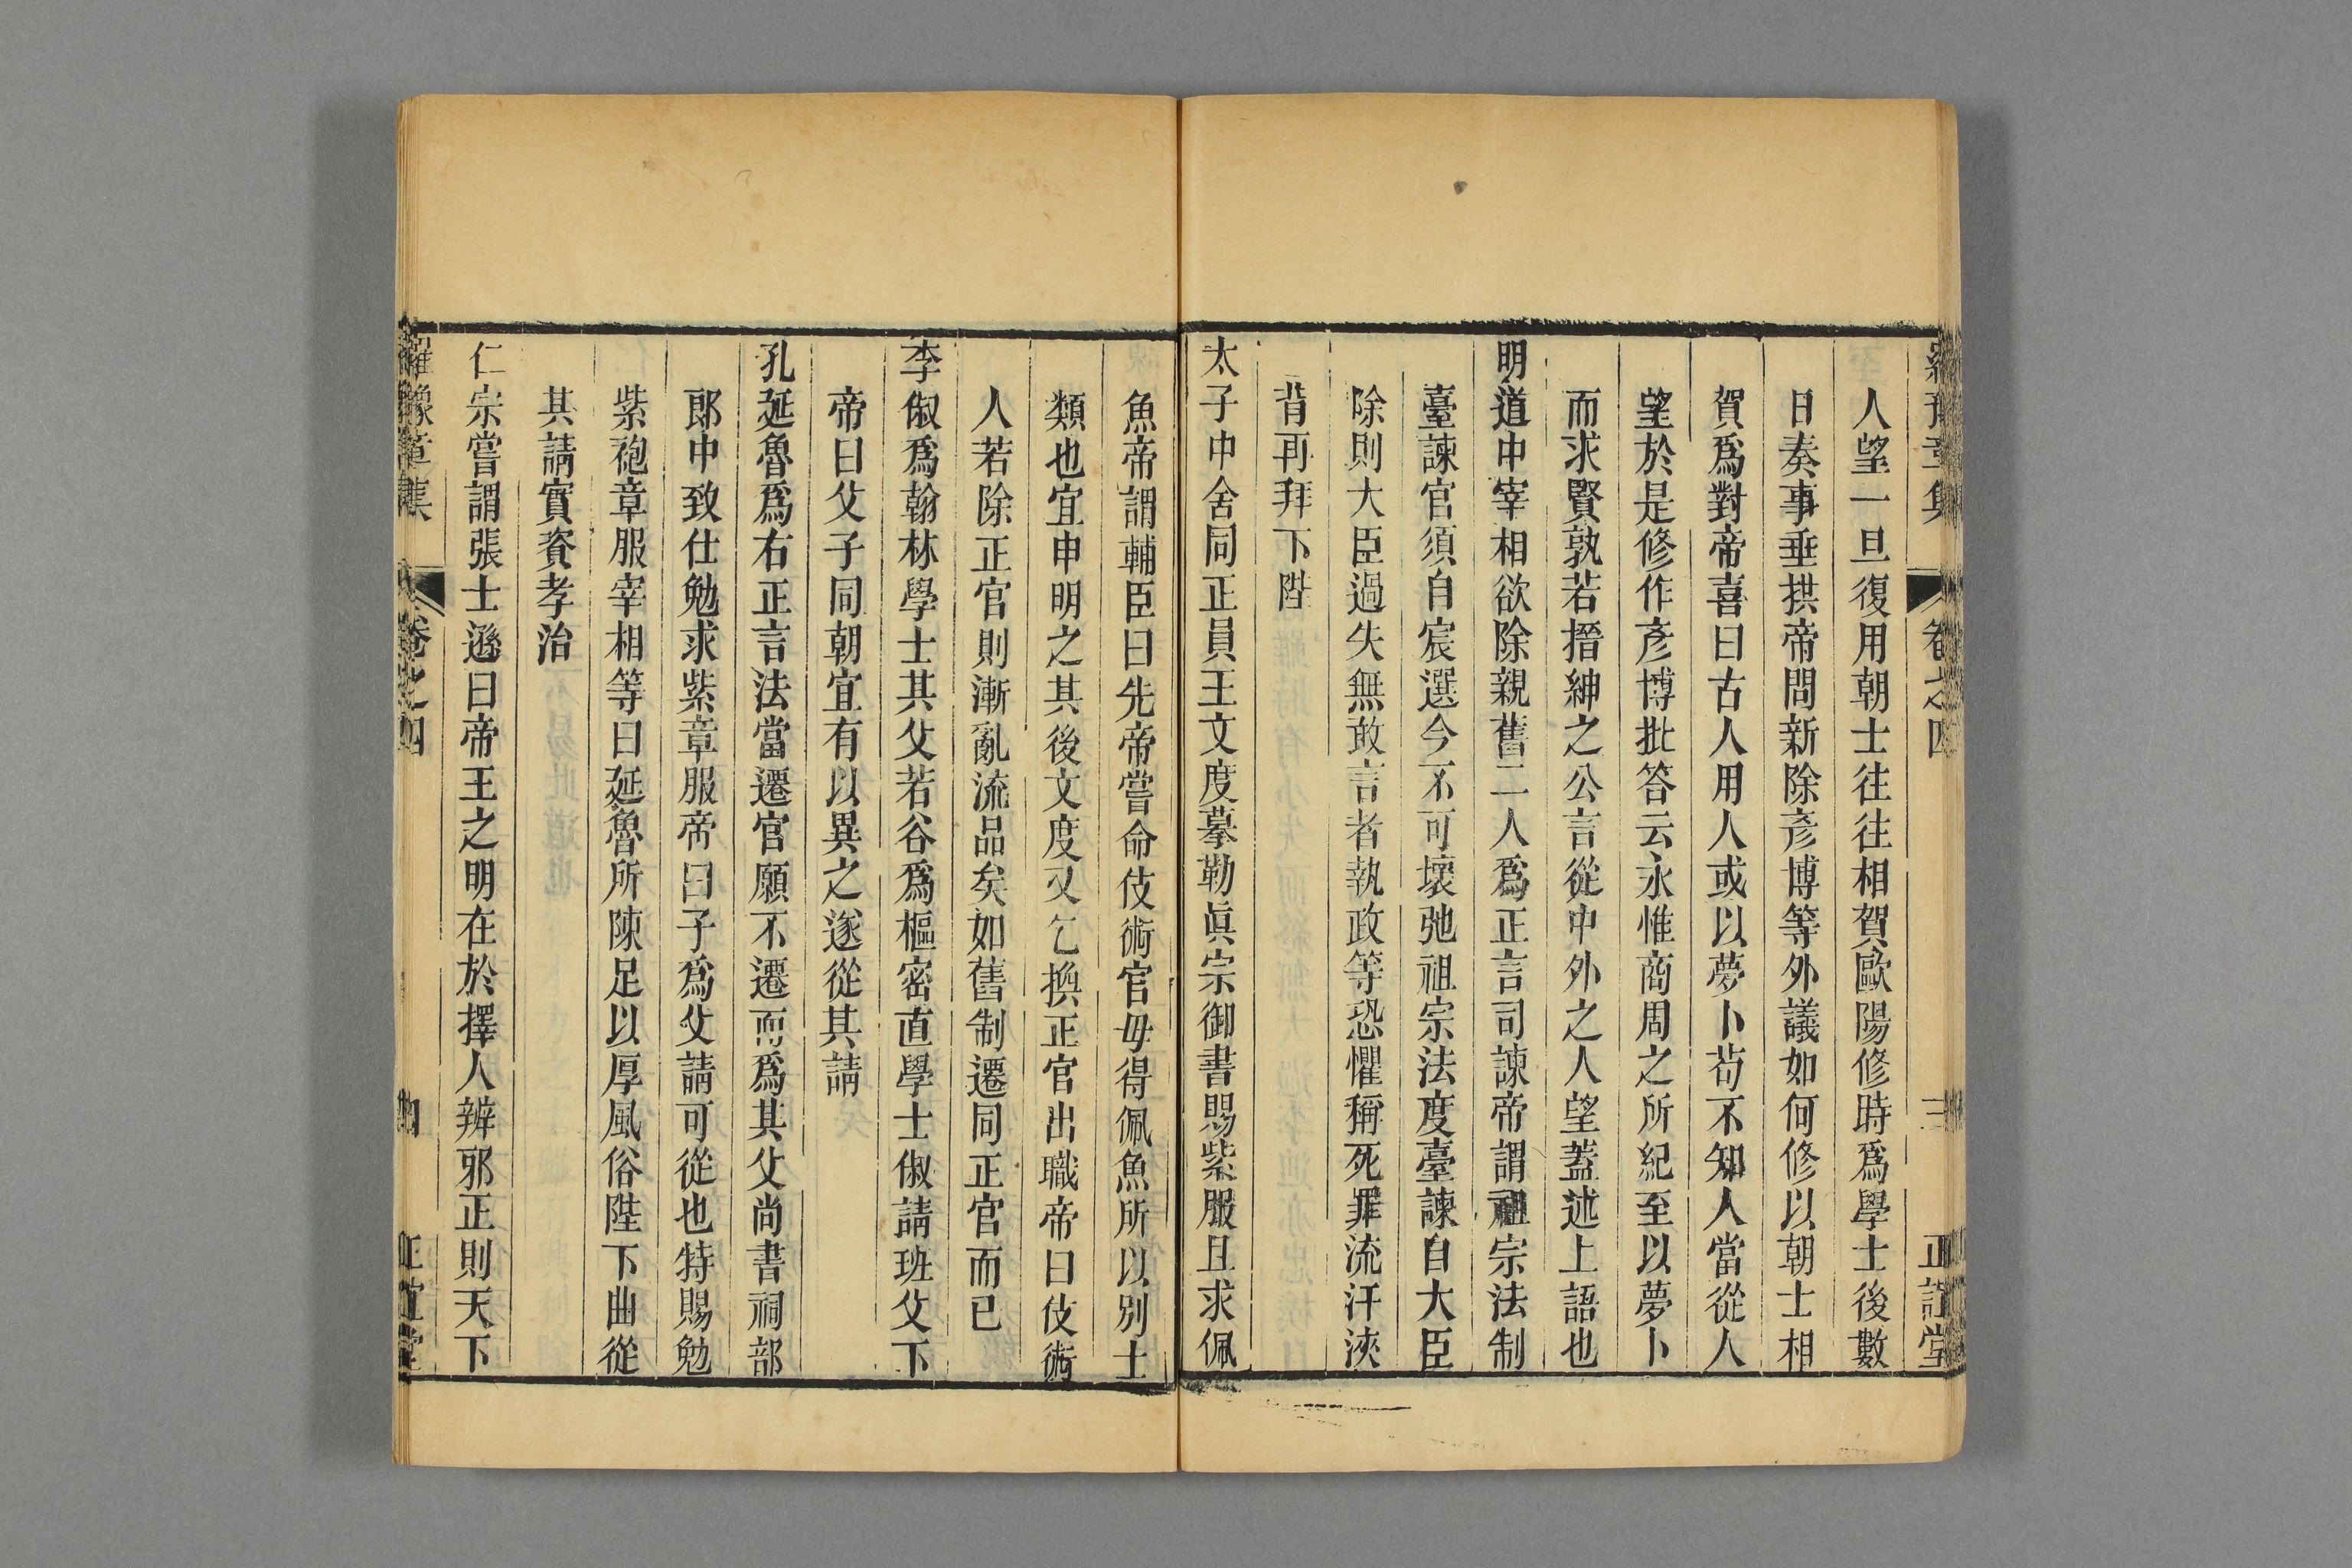 羅豫章集 卷之四 三 正誼堂
人望一旦復用朝士往往相賀歐陽修時爲學士後數
日奏事垂拱帝問新除彥博等外議如何修以朝士相
賀爲對帝喜曰古人用人或以夢卜苟不知人當從人
望於是修作彥博批答云永惟商周之所紀至以夢卜
而求賢孰若搢紳之公言從中外之人望蓋述上語也
明道中宰相欲除親舊二人爲正言司諫帝謂祖宗法制
臺諫官須自宸選今不可壞弛祖宗法度臺諫自大臣
除則大臣過失無敢言者執政等恐懼稱死罪流汗浹
背再拜下陛
太子中舍同正員王文度摹勒眞宗御書賜紫服且求佩
魚帝謂輔臣曰先帝嘗命伎術官毋得佩魚所以別士
類也宜申明之其後文度又乞換正官出職帝曰伎術
人若除正官則漸亂流品矣如舊制遷同正官而已
李俶爲翰林學士其父若谷爲樞密直學士俶請班父下
帝曰父子同朝宜有以異之遂從其請
孔延魯爲右正言法當遷官願不遷而爲其父尚書祠部
郞中致仕勉求紫章服帝曰子爲父請可從也特賜勉
紫袍章服宰相等曰延魯所陳足以厚風俗陛下曲從
其請實資孝治
仁宗嘗謂張士遜曰帝王之明在於擇人辨邪正則天下
羅豫章集 卷之四 四 正誼堂